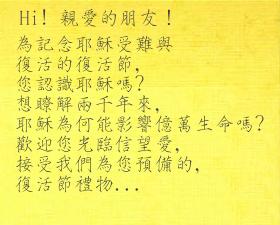 Hi! 親愛的朋友!
為記念耶穌受難與
復活的復活節,
您認識耶穌嗎?
想瞭解兩千年來,
耶穌為何能影響億萬生命嗎?
歡迎您光臨信望愛,
接受我們為您預備的,
復活節禮物...